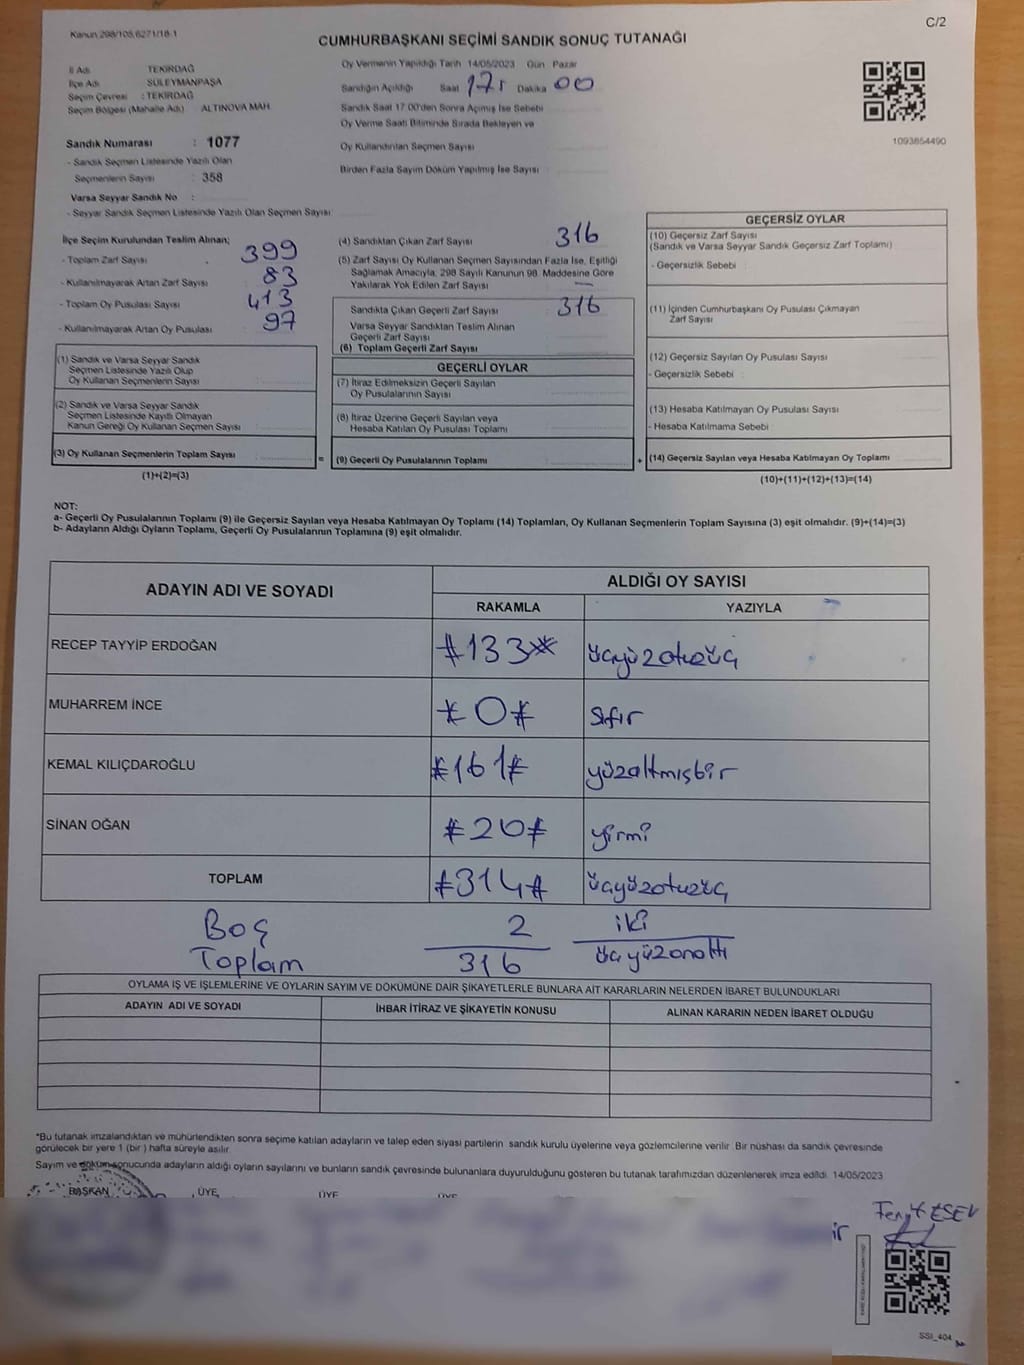 C/2
Kanun 298/105,6271/18-1
CUMHURBAŞKANI SEÇİMİ SANDIK SONUÇ TUTANAĞI
İl Adı TEKİRDAĞ
İlçe Adı SÜLEYMANPAŞA
Seçim Çevresi : TEKİRDAĞ
Seçim Bölgesi (Mahalle Adı) ALTINOVA MAH
Oy Vermenin Yapıldığı Tarih 14/05/2023 Gün Pazar
Sandığın Açıldığı Saat 17 Dakika 00
Sandık Saat 17.00'den Sonra Açımış İse Sebebi
Oy Verme Saati Bitiminde Sırada Bekleyen ve
Oy Kullandırılan Seçmen Sayısı
Birden Fazla Sayım Döküm Yapılmış İse Sayısı
1093854490
Sandık Numarası : 1077
- Sandık Seçmen Listesinde Yazılı Olan
Seçmenlerin Sayısı : 358
Varsa Seyyar Sandık No :
- Seyyar Sandık Seçmen Listesinde Yazılı Olan Seçmen Sayısı
İlçe Seçim Kurulundan Teslim Alınan;
- Toplam Zarf Sayısı 399
- Kullanılmayarak Artan Zarf Sayısı 83
- Toplam Oy Pusulası Sayısı 413
- Kullanılmayarak Artan Oy Pusulası 97
(1) Sandık ve Varsa Seyyar Sandık
Seçmen Listesinde Yazılı Olup
Oy Kullanan Seçmenlerin Sayısı
(2) Sandık ve Varsa Seyyar Sandık
Seçmen Listesinde Kayıtlı Olmayan
Kanun Gereği Oy Kullanan Seçmen Sayısı
(3) Oy Kullanan Seçmenlerin Toplam Sayısı
(1)+(2)=(3)
=
(4) Sandıktan Çıkan Zarf Sayısı 316
(5) Zarf Sayısı Oy Kullanan Seçmen Sayısından Fazla İse, Eşitliği
Sağlamak Amacıyla, 298 Sayılı Kanunun 98. Maddesine Göre
Yakılarak Yok Edilen Zarf Sayısı —
Sandıkta Çıkan Geçerli Zarf Sayısı 316
Varsa Seyyar Sandıktan Teslim Alınan
Geçerli Zarf Sayısı
(6) Toplam Geçerli Zarf Sayısı
GEÇERLİ OYLAR
(7) İtiraz Edilmeksizin Geçerli Sayılan
Oy Pusulalarının Sayısı
(8) İtiraz Üzerine Geçerli Sayılan veya
Hesaba Katılan Oy Pusulası Toplamı
(9) Geçerli Oy Pusulalarının Toplamı
+
GEÇERSİZ OYLAR
(10) Geçersiz Zarf Sayısı
(Sandık ve Varsa Seyyar Sandık Geçersiz Zarf Toplamı)
- Geçersizlik Sebebi
(11) İçinden Cumhurbaşkanı Oy Pusulası Çıkmayan
Zarf Sayısı
(12) Geçersiz Sayılan Oy Pusulası Sayısı
- Geçersizlik Sebebi :
(13) Hesaba Katılmayan Oy Pusulası Sayısı
- Hesaba Katılmama Sebebi
(14) Geçersiz Sayılan veya Hesaba Katılmayan Oy Toplamı
(10)+(11)+(12)+(13)=(14)
NOT:
a- Geçerli Oy Pusulalarının Toplamı (9) ile Geçersiz Sayılan veya Hesaba Katılmayan Oy Toplamı (14) Toplamları, Oy Kullanan Seçmenlerin Toplam Sayısına (3) eşit olmalıdır. (9)+(14)=(3)
b- Adayların Aldığı Oyların Toplamı, Geçerli Oy Pusulalarının Toplamına (9) eşit olmalıdır.
ADAYIN ADI VE SOYADI
ALDIĞI OY SAYISI
RAKAMLA YAZIYLA
RECEP TAYYİP ERDOĞAN #133# üçyüzotuzüç
MUHARREM İNCE #0# sıfır
KEMAL KILIÇDAROĞLU #161# yüzaltmışbir
SİNAN OĞAN #20# yirmi
TOPLAM #314# üçyüzotuzüç
Boş 2 iki
Toplam 316 üçyüzonaltı
OYLAMA İŞ VE İŞLEMLERİNE VE OYLARIN SAYIM VE DÖKÜMÜNE DAİR ŞİKAYETLERLE BUNLARA AİT KARARLARIN NELERDEN İBARET BULUNDUKLARI
ADAYIN ADI VE SOYADI İHBAR İTİRAZ VE ŞİKAYETİN KONUSU ALINAN KARARIN NEDEN İBARET OLDUĞU
*Bu tutanak imzalandıktan ve mühürlendikten sonra seçime katılan adayların ve talep eden siyasi partilerin sandık kurulu üyelerine veya gözlemcilerine verilir. Bir nüshası da sandık çevresinde
görülecek bir yere 1 (bir) hafta süreyle asılır.
Sayım ve döküm sonucunda adayların aldığı oyların sayılarını ve bunların sandık çevresinde bulunanlara duyurulduğunu gösteren bu tutanak tarafımızdan düzenlenerek imza edildi. 14/05/2023
BAŞKAN ÜYE ÜYE ÜYE
ESEN
SSI_404